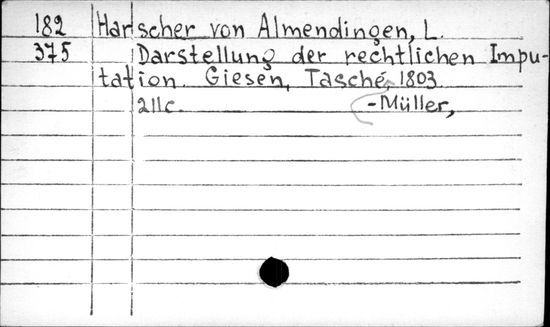 182 Harscher von Almendingen, L.
375 Darstellung der rechtlichen Impu-
tation. Giesen, Tasché, 1803
211c. -Müller,